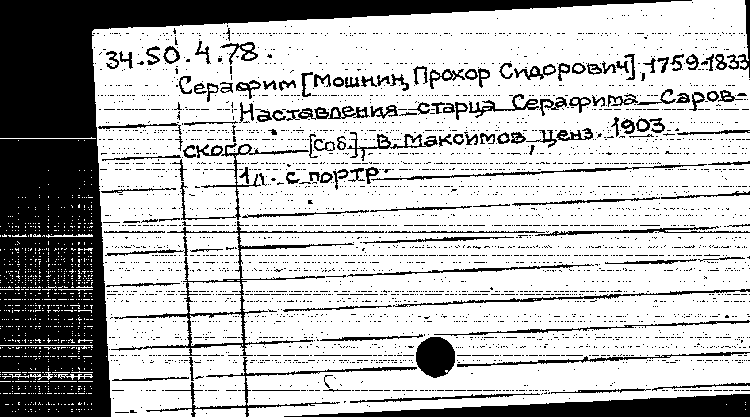 34.50.4.78.
Серафим [Мошнин, Прохор Сидорович], 1759-1833
Наставления старца Серафима Саров-
ского. [Спб.], В. Максимов, ценз. 1903.
1 л. с портр.